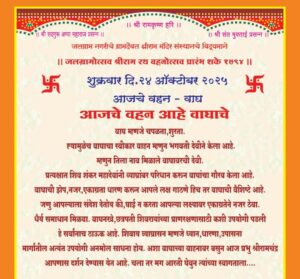 ।। श्री रामकृष्ण हरि ।।
।। श्री सद्गुरू अप्पा महाराज प्रसन्न ।।
।। श्री संत मुक्ताई प्रसन्न ।।
जळग्राम नगरीचे ग्रामदैवत श्रीराम मंदिर संस्थानचे विद्यमाने
।। जळग्रामोत्सव श्रीराम रथ वहनोत्सव प्रारंभ शके १९४७ ।।
शुक्रवार दि.२४ ऑक्टोबर २०२५
आजचे वहन - वाघ
आजचे वहन आहे वाघाचे
वाघ म्हणजे चपळता,शुरता.
त्यामुळेच वाघाचा स्वीकार वाहन म्हणून भगवती देवीने केला आहे.
म्हणुन तिला नाव मिळाले वाघावरची देवी.
प्रत्यक्षात शिव शंकर महादेवांनी व्याघ्रांबर परिधान करून वाघांचा गौरव केला आहे.
वाघाची झेप,नजर,एकाग्रता धारण करून आपले लक्ष गाठणे हिच तर वाघाची वैशिष्टे आहे.
जणु आपल्याला संदेश देतोय की,घाई न करता आपल्या लक्ष्यावर एकाग्रतेने नजर ठेवा.
धैर्य समाधान मिळवा. वाघनखे,छत्रपती शिवरायांच्या प्राणरक्षणासाठी कशी उपयोगी पडली
हे सर्वांनाच ठाऊक आहे. शिवाय व्याघ्रासन म्हणजे ध्यान,धारणा,उपासना
मार्गातील अत्यंत उपयोगी अनमोल साधना होय. अशा वाघाच्या वाहनावर बसुन आज प्रभु श्रीरामचंद्र
आपणास दर्शन देण्यास येत आहे. चला तर मग आरती घेवून त्यांच्या स्वागताला....